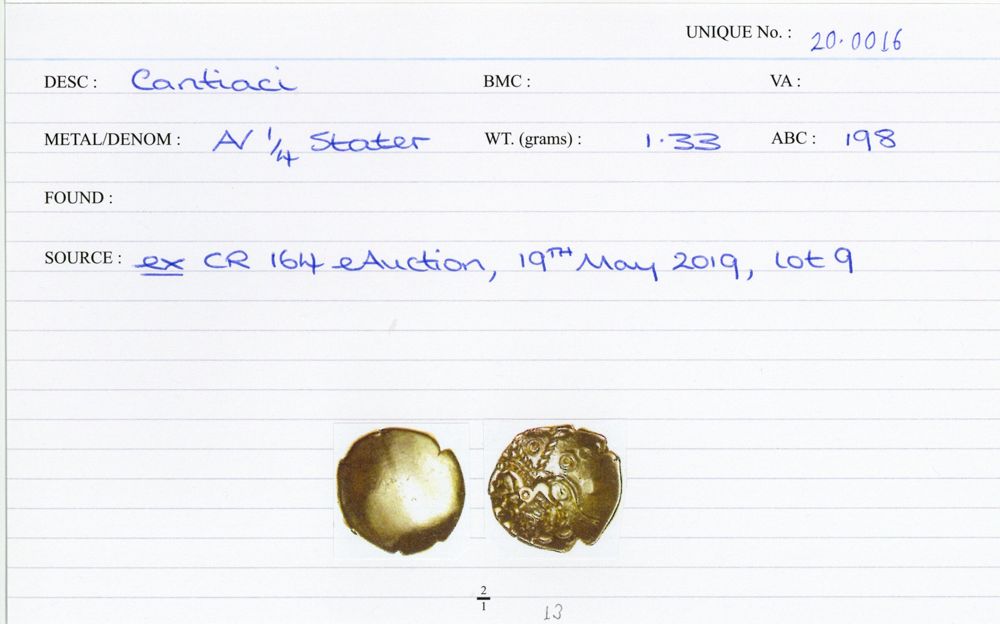 UNIQUE No. : 20.0016
DESC : Cantiaci BMC : VA :
METAL/DENOM : AV 1/4 Stater WT. (grams) : 1.33 ABC : 198
FOUND :
SOURCE : ex CR 164 eAuction, 19TH May 2019, Lot 9
2/1
13